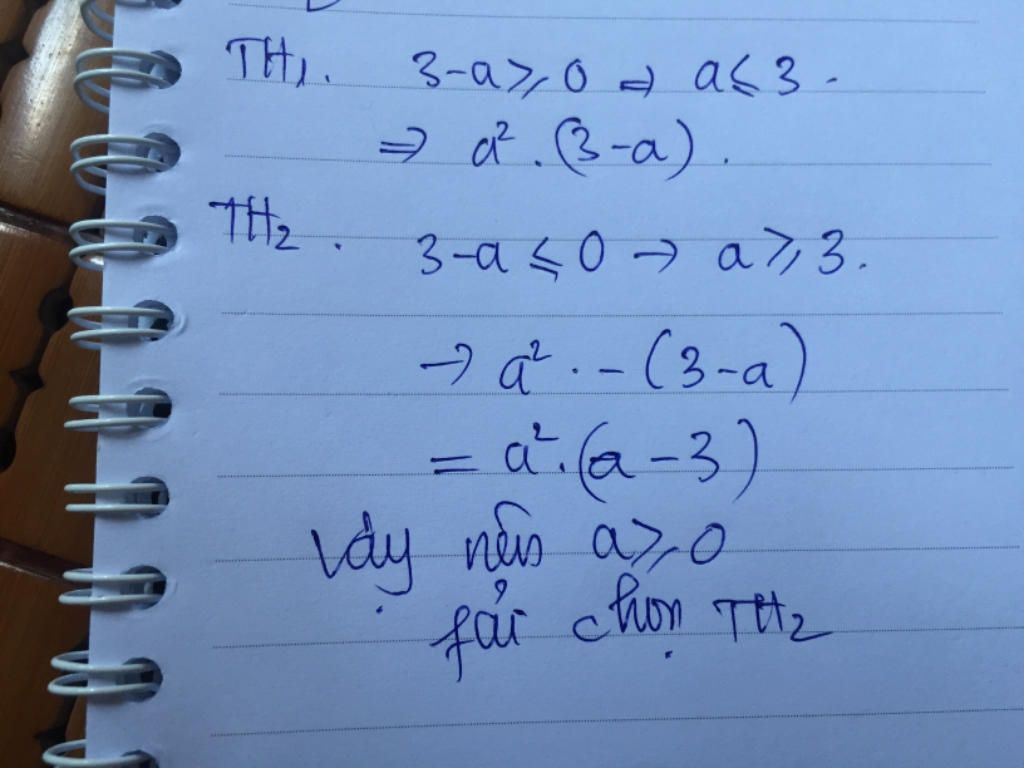 TH₁. 3-a ⩾ 0 ⇒ a ⩽ 3.
⇒ a². (3-a).
TH₂. 3-a ⩽ 0 → a ⩾ 3.
→ a². -(3-a)
= a².(a-3)
Vậy nên a ⩾ 0
fải chọn TH₂